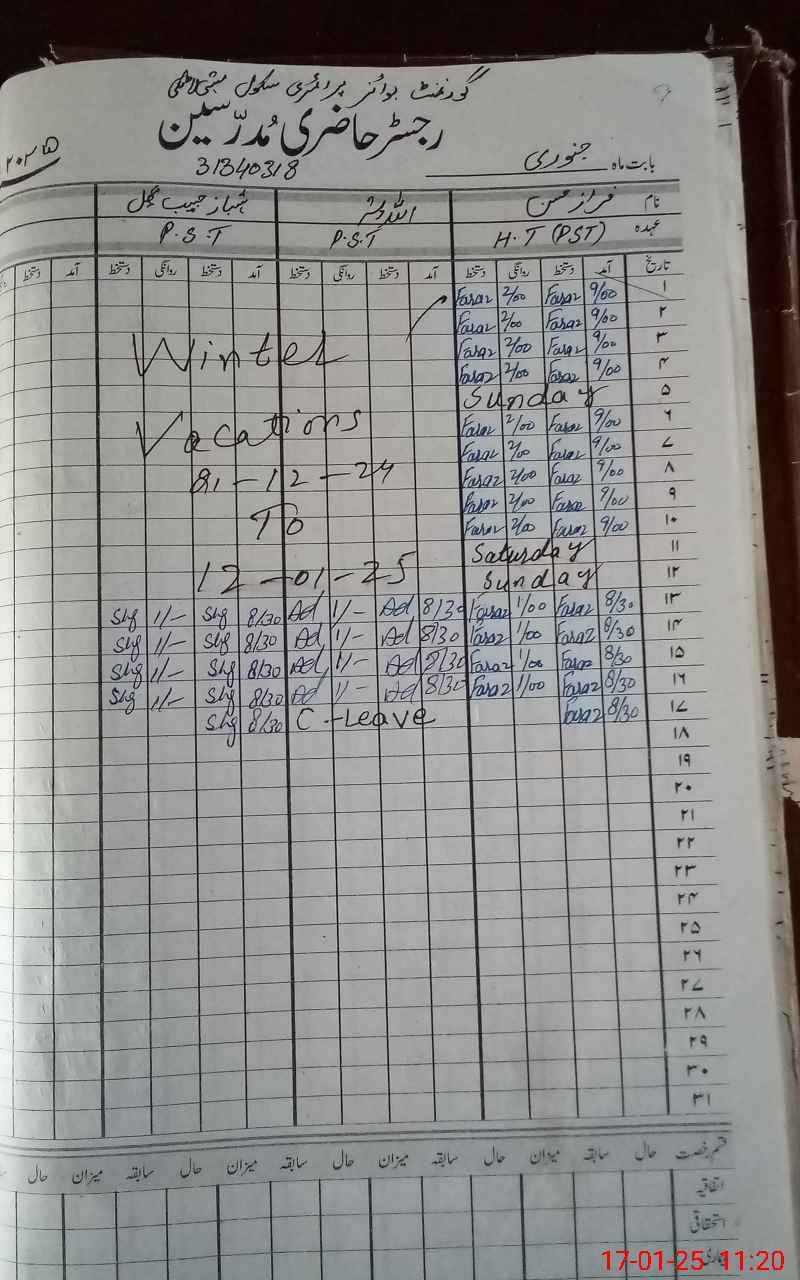 گورنمنٹ بوائز پرائمری سکول
رجسٹر حاضری مُدرّسین
بابت ماہ جنوری ٢٠٢٥
31340318
نام فراز حسن اللہ دتہ شہباز حبیب
عہدہ H.T (PST) P.S.T P.S.T
تاریخ آمد دستخط روانگی دستخط آمد دستخط روانگی دستخط آمد دستخط روانگی دستخط آمد دستخط
١ 9/00 Faraz 2/00 Faraz
٢ 9/00 Faraz 2/00 Faraz
٣ 9/00 Faraz 2/00 Faraz
٤ 9/00 Faraz 2/00 Faraz
Winter
٥ Sunday
٦ 9/00 Faraz 2/00 Faraz
Vacations
٧ 9/00 Faraz 2/00 Faraz
٨ 9/00 Faraz 2/00 Faraz
-12-24
٩ 9/00 Faraz 2/00 Faraz
١٠ 9/00 Faraz 2/00 Faraz
To
١١ Saturday
١٢ Sunday
12-01-25
١٣ 8/30 Faraz 1/00 Faraz 8/30 Ad 1/- Ad 8/30 Shg 1/- Shg
١٤ 8/30 Faraz 1/00 Faraz 8/30 Ad 1/- Ad 8/30 Shg 1/- Shg
١٥ 8/30 Faraz 1/00 Faraz 8/30 Ad 1/- Ad 8/30 Shg 1/- Shg
١٦ 8/30 Faraz 1/00 Faraz 8/30 Ad 1/- Ad 8/30 Shg 1/- Shg
١٧ 8/30 Faraz C-Leave 8/30 Shg
١٨
١٩
٢٠
٢١
٢٢
٢٣
٢٤
٢٥
٢٦
٢٧
٢٨
٢٩
٣٠
٣١
قسم رخصت حال سابقہ میزان حال سابقہ میزان حال سابقہ میزان حال سابقہ میزان حال
اتفاقیہ
استحقاقی
17-01-25 11:20